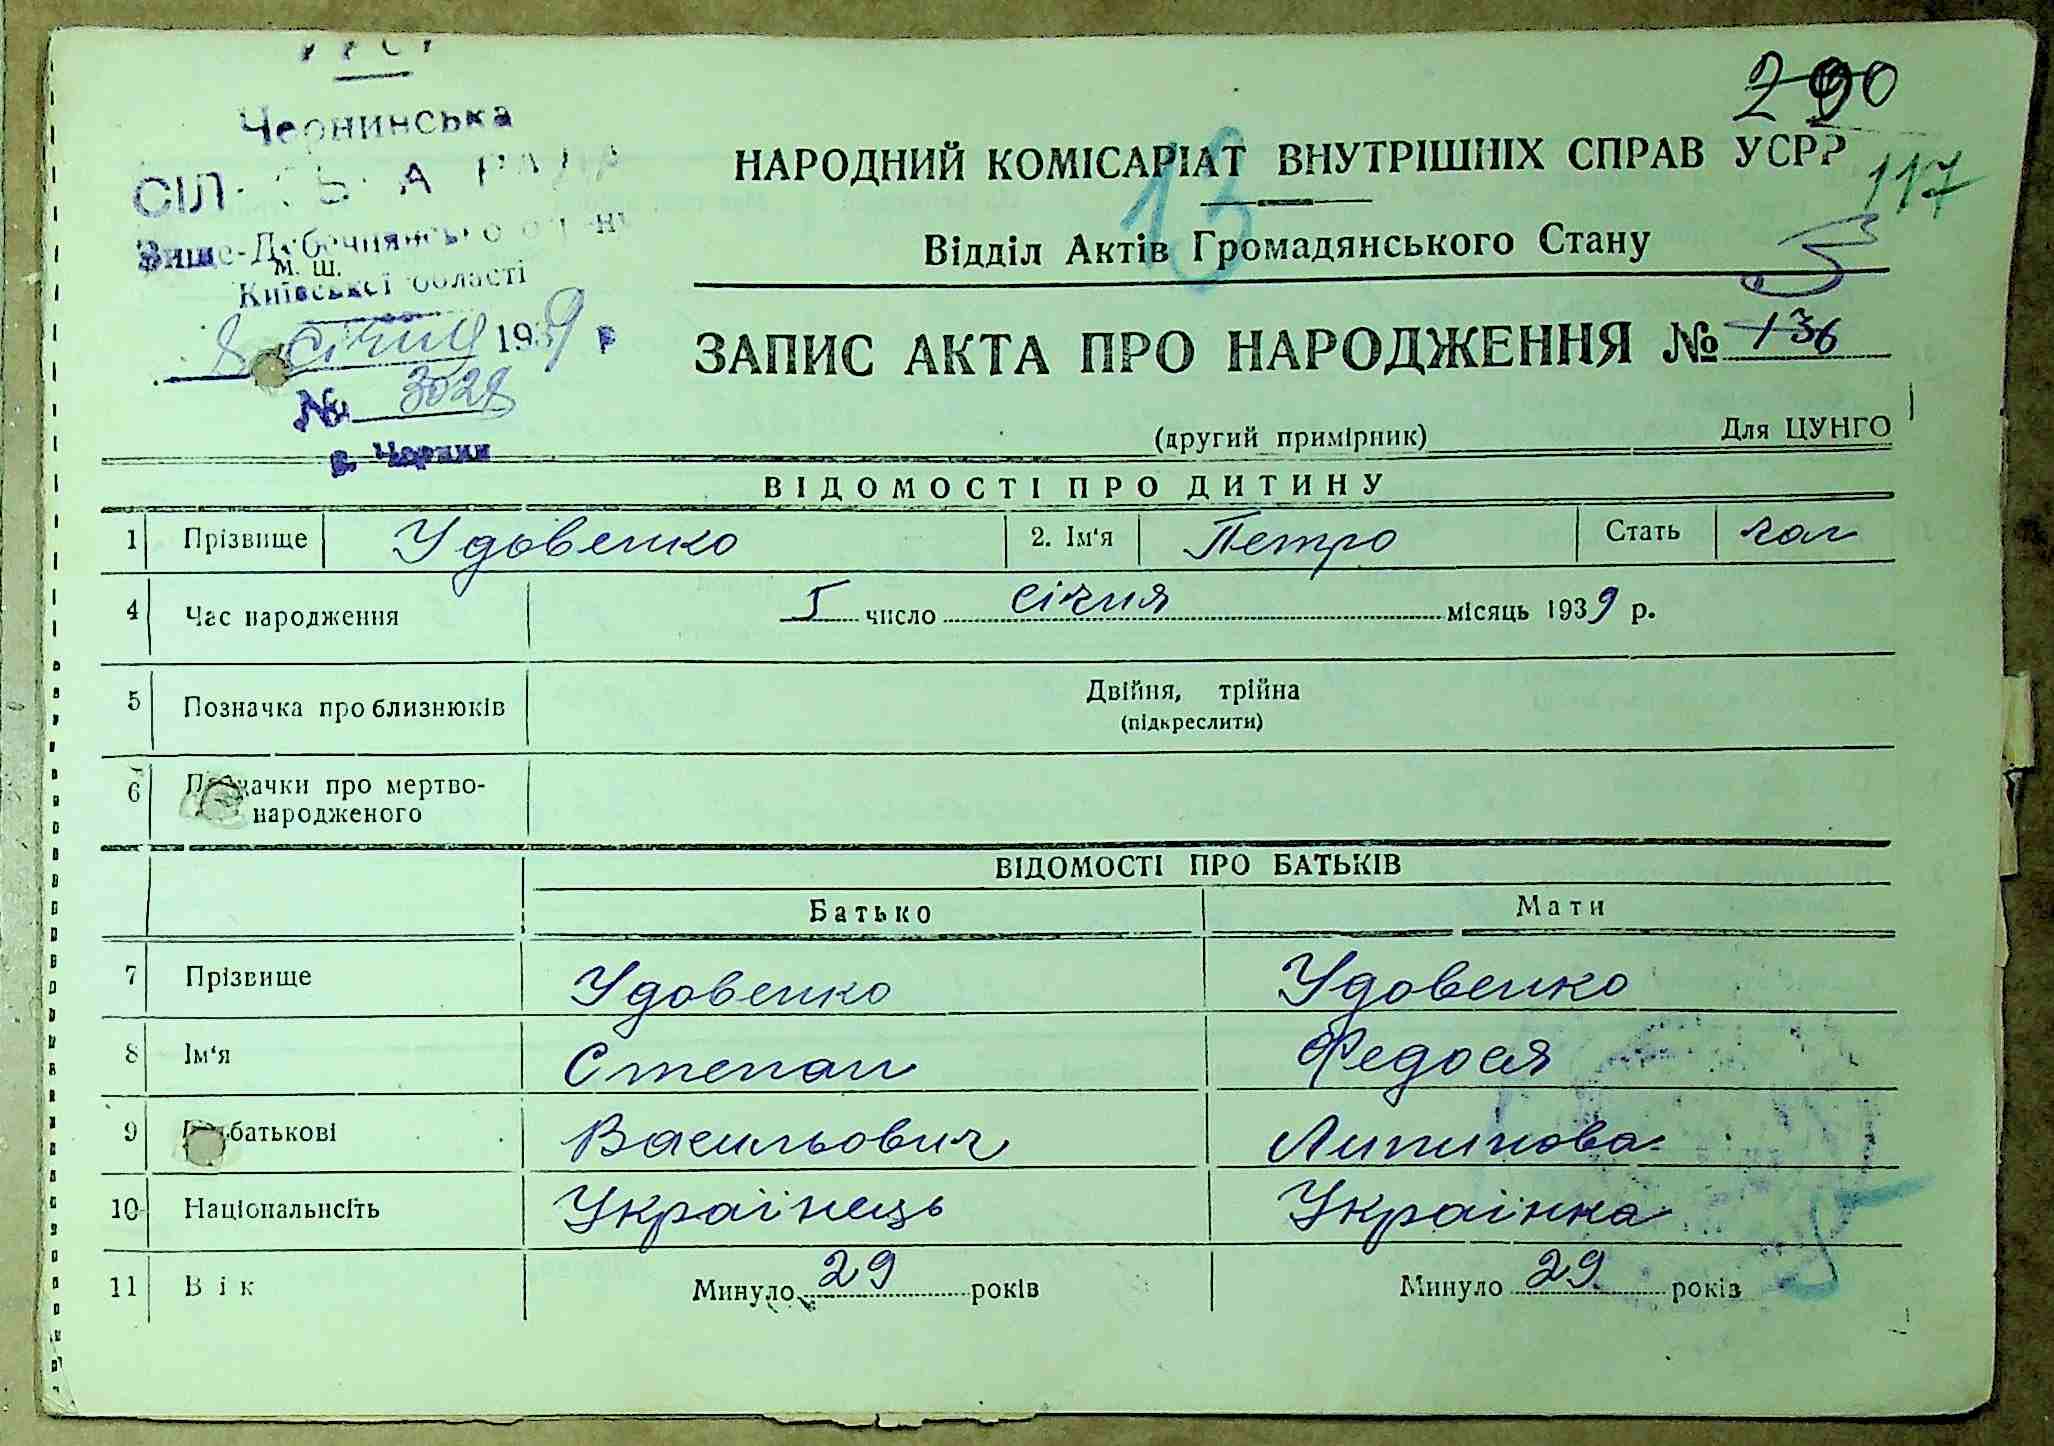 Чернинська
СІЛЬСЬКА РАДА
Вище-Дубечнянського р-ну
м. ш.
Київської області
8 січня 1939 р
№ 3028
с. Чернин
290
117
13
НАРОДНИЙ КОМІСАРІАТ ВНУТРІШНІХ СПРАВ УСРР
Відділ Актів Громадянського Стану
5
ЗАПИС АКТА ПРО НАРОДЖЕННЯ № 136
(другий примірник) Для ЦУНГО
ВІДОМОСТІ ПРО ДИТИНУ
1 Прізвище Удовенко 2. Ім'я Петро Стать чол
4 Час народження 5 число січня місяць 1939 р.
5 Позначка про близнюків Двійня, трійна
(підкреслити)
6 Позначки про мертво-
народженого
ВІДОМОСТІ ПРО БАТЬКІВ
Батько Мати
7 Прізвище Удовенко Удовенко
8 Ім'я Степан Федося
9 По батькові Васильович
10 Національність Українець Українка
11 Вік Минуло 29 років Минуло 29 років